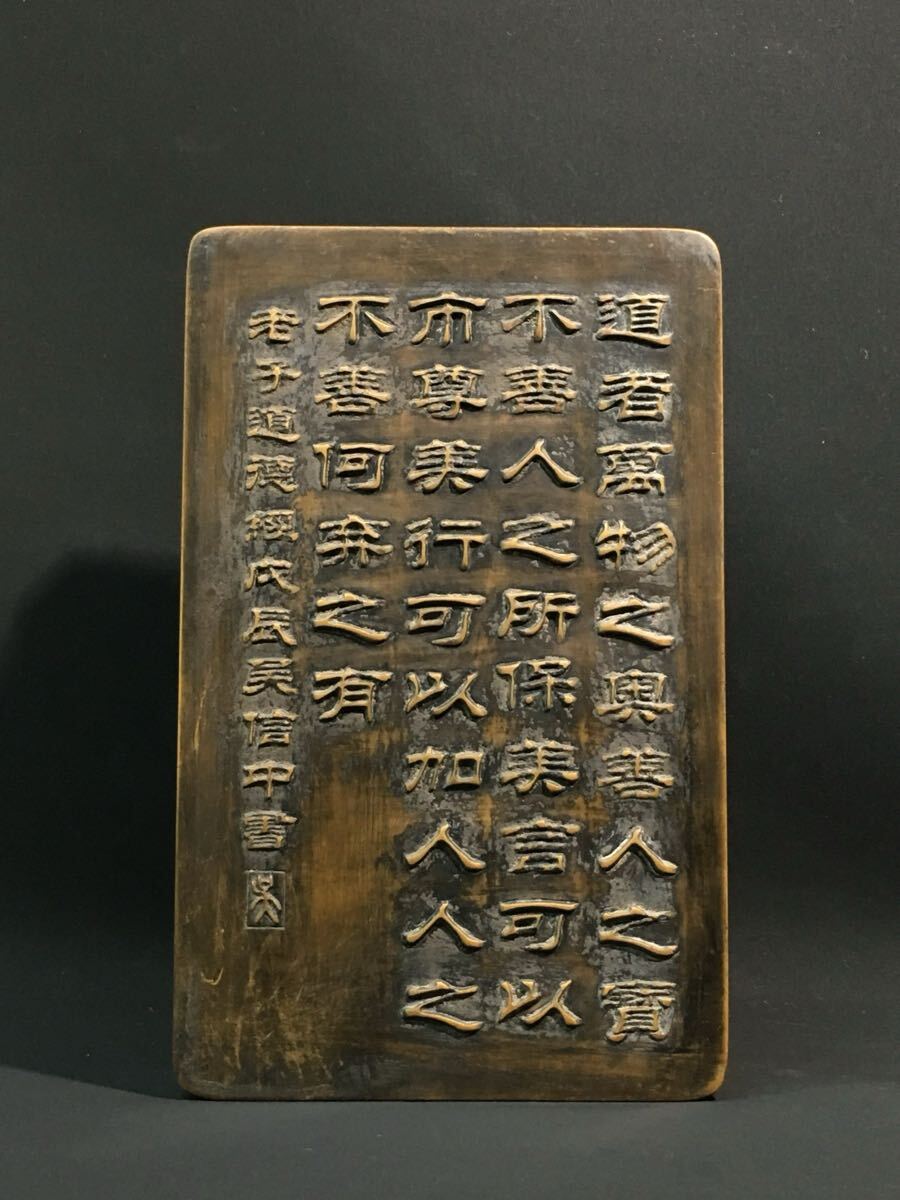 道者萬物之奧善人之寶
不善人之所保美言可以
市尊美行可以加人人之
不善何棄之有
老子道德經戊辰吳信中書
吳